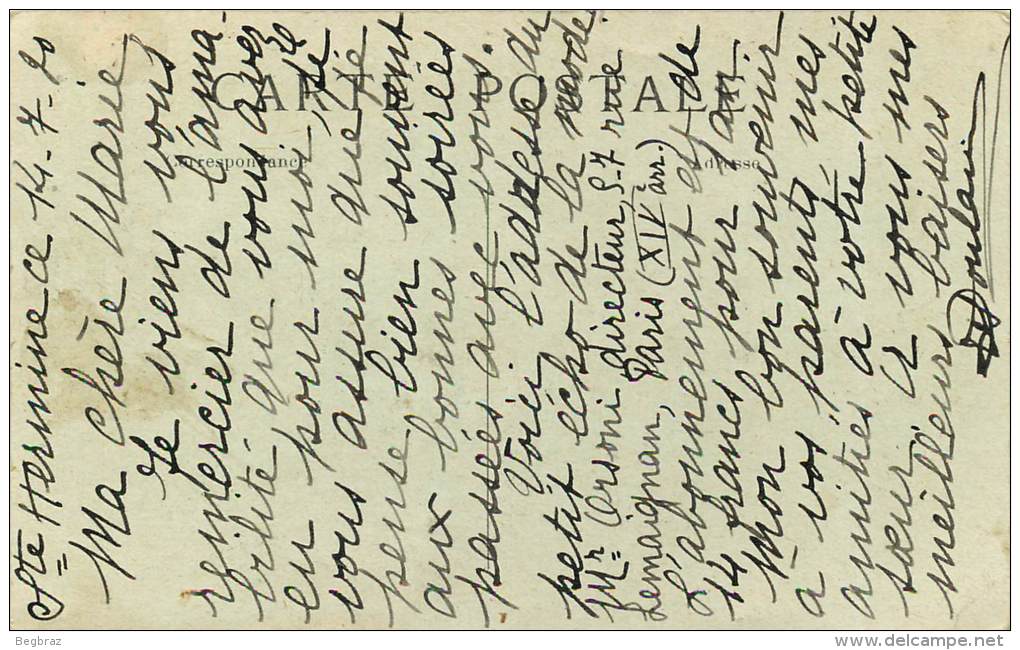 Ste Hermine ce 14-7-20
Ma chère Marie
Je viens vous
remercier de l'ama-
brlité que vous avez
eu pour moi, Je
vous assure que je
pense bien souvent
aux bonnes soirées
passées avec vous.
Voici l'adresse du
petit écho de la mode
Mr Orsoni directeur, 5-7 rue
Lemaignan, Paris (XIV arr.)
L'abonnement est de
14 francs pour an.
Mon bon souvenir
à vos parents mes
amitiés à votre petite
sœur et vous mes
meilleurs baisers
CARTE POSTALE
Correspondance
Adresse
Begbraz
www.delcampe.net